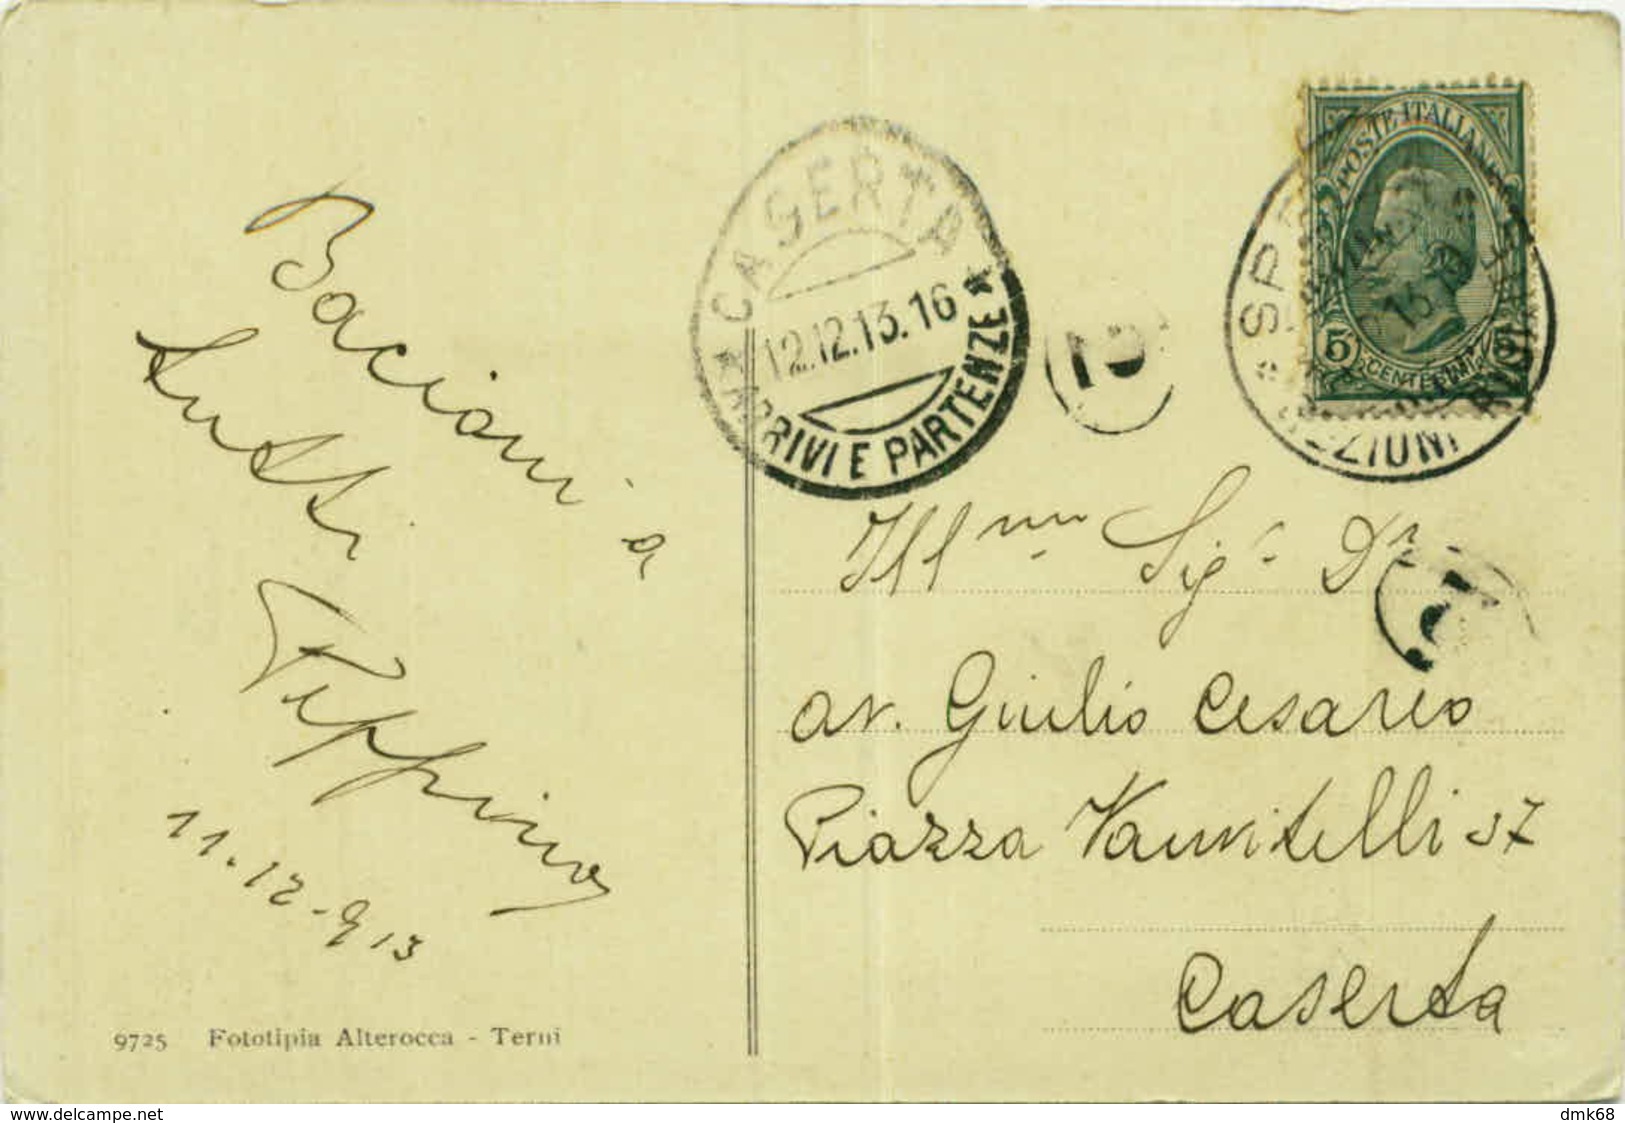 Bacioni a
tutti
Peppino
11.12-913
9725 Fototipia Alterocca - Terni
CASERTA
12.12.13.16
★ ARRIVI E PARTENZE ★
POSTE ITALIANE
5 CENTESIMI 5
Ill mo Sigr Dr
av. Giulio Cesareo
Piazza Vanvitelli 37
Caserta
www.delcampe.net
dmk68